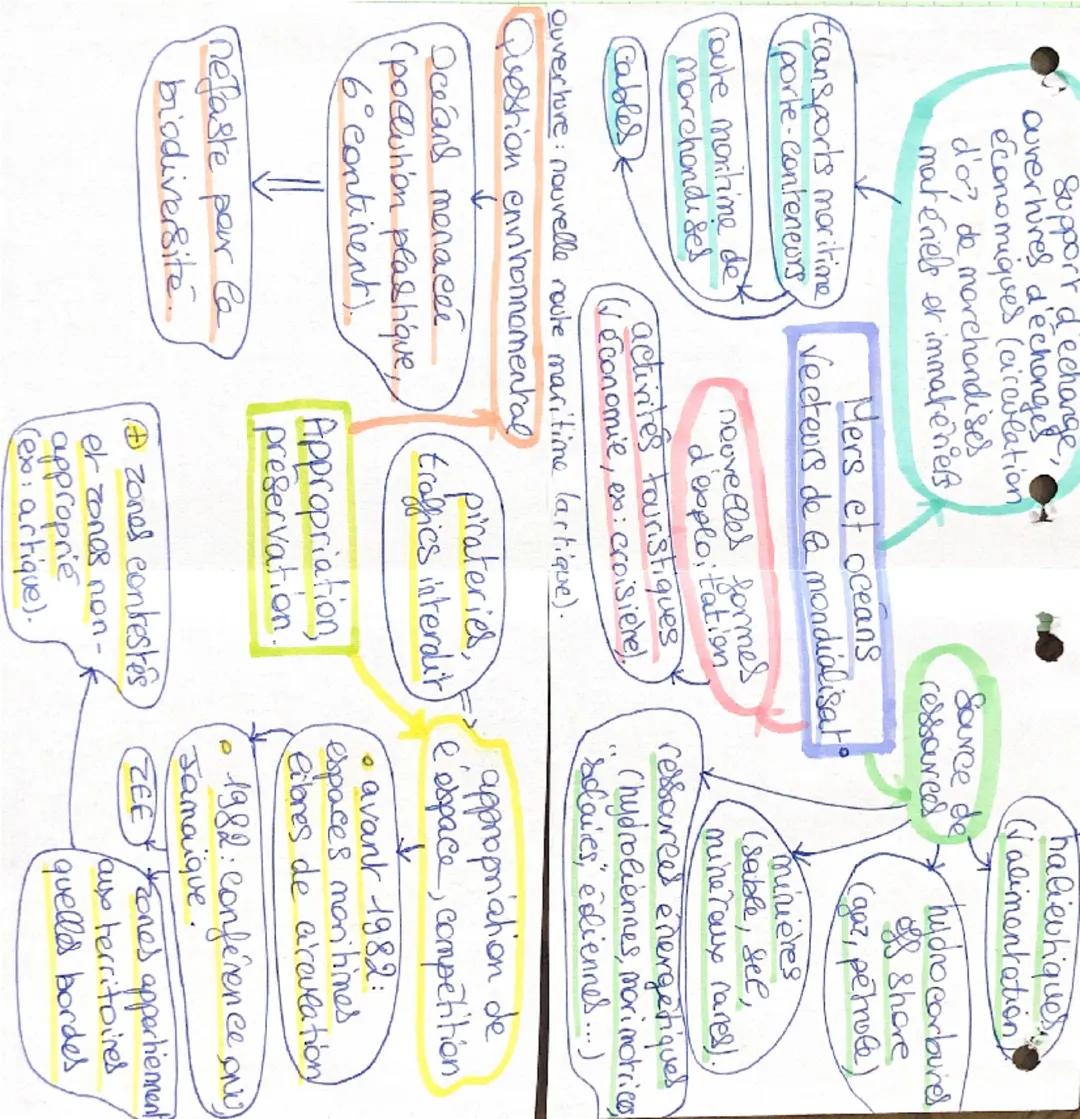 Support d'échange,
ouvertures d'échanges
économiques (circulation
d'or, de marchandises
matériels et immatériels
transports maritime
(porte-conteneurs
route maritime de
marchandises
Cables
Mers et océans
Vecteurs de la mondialisat°
nouvelles formes
d'exploitation
activités touristiques
(√ économie, ex: croisière).
Source de
ressources
halieutiques,
(√ alimentation)
hydrocarbures
off shore
(gaz, pétrole)
minières
(sable, sel,
minéraux rares).
ressources énergétiques
(hydroliennes, marimotrices
"solaires", éoliennes...)
ouverture: nouvelle route maritime (artique).
Question environnomental
Océans menacée
(pollution plastique,
6° continent).
néfaste pour la
biodiversité.
Appropriation,
préservation.
pirateries,
traffics interdit
=> appropriation de
l'espace, compétition
• avant 1982:
espaces maritimes
libres de circulation
• 1982: conférence onu,
Jamaïque.
ZEE
zones appartiement
aux territoires
quelles bordes
⊕ zones contestés
et zones non-
approprié
(ex: artique).